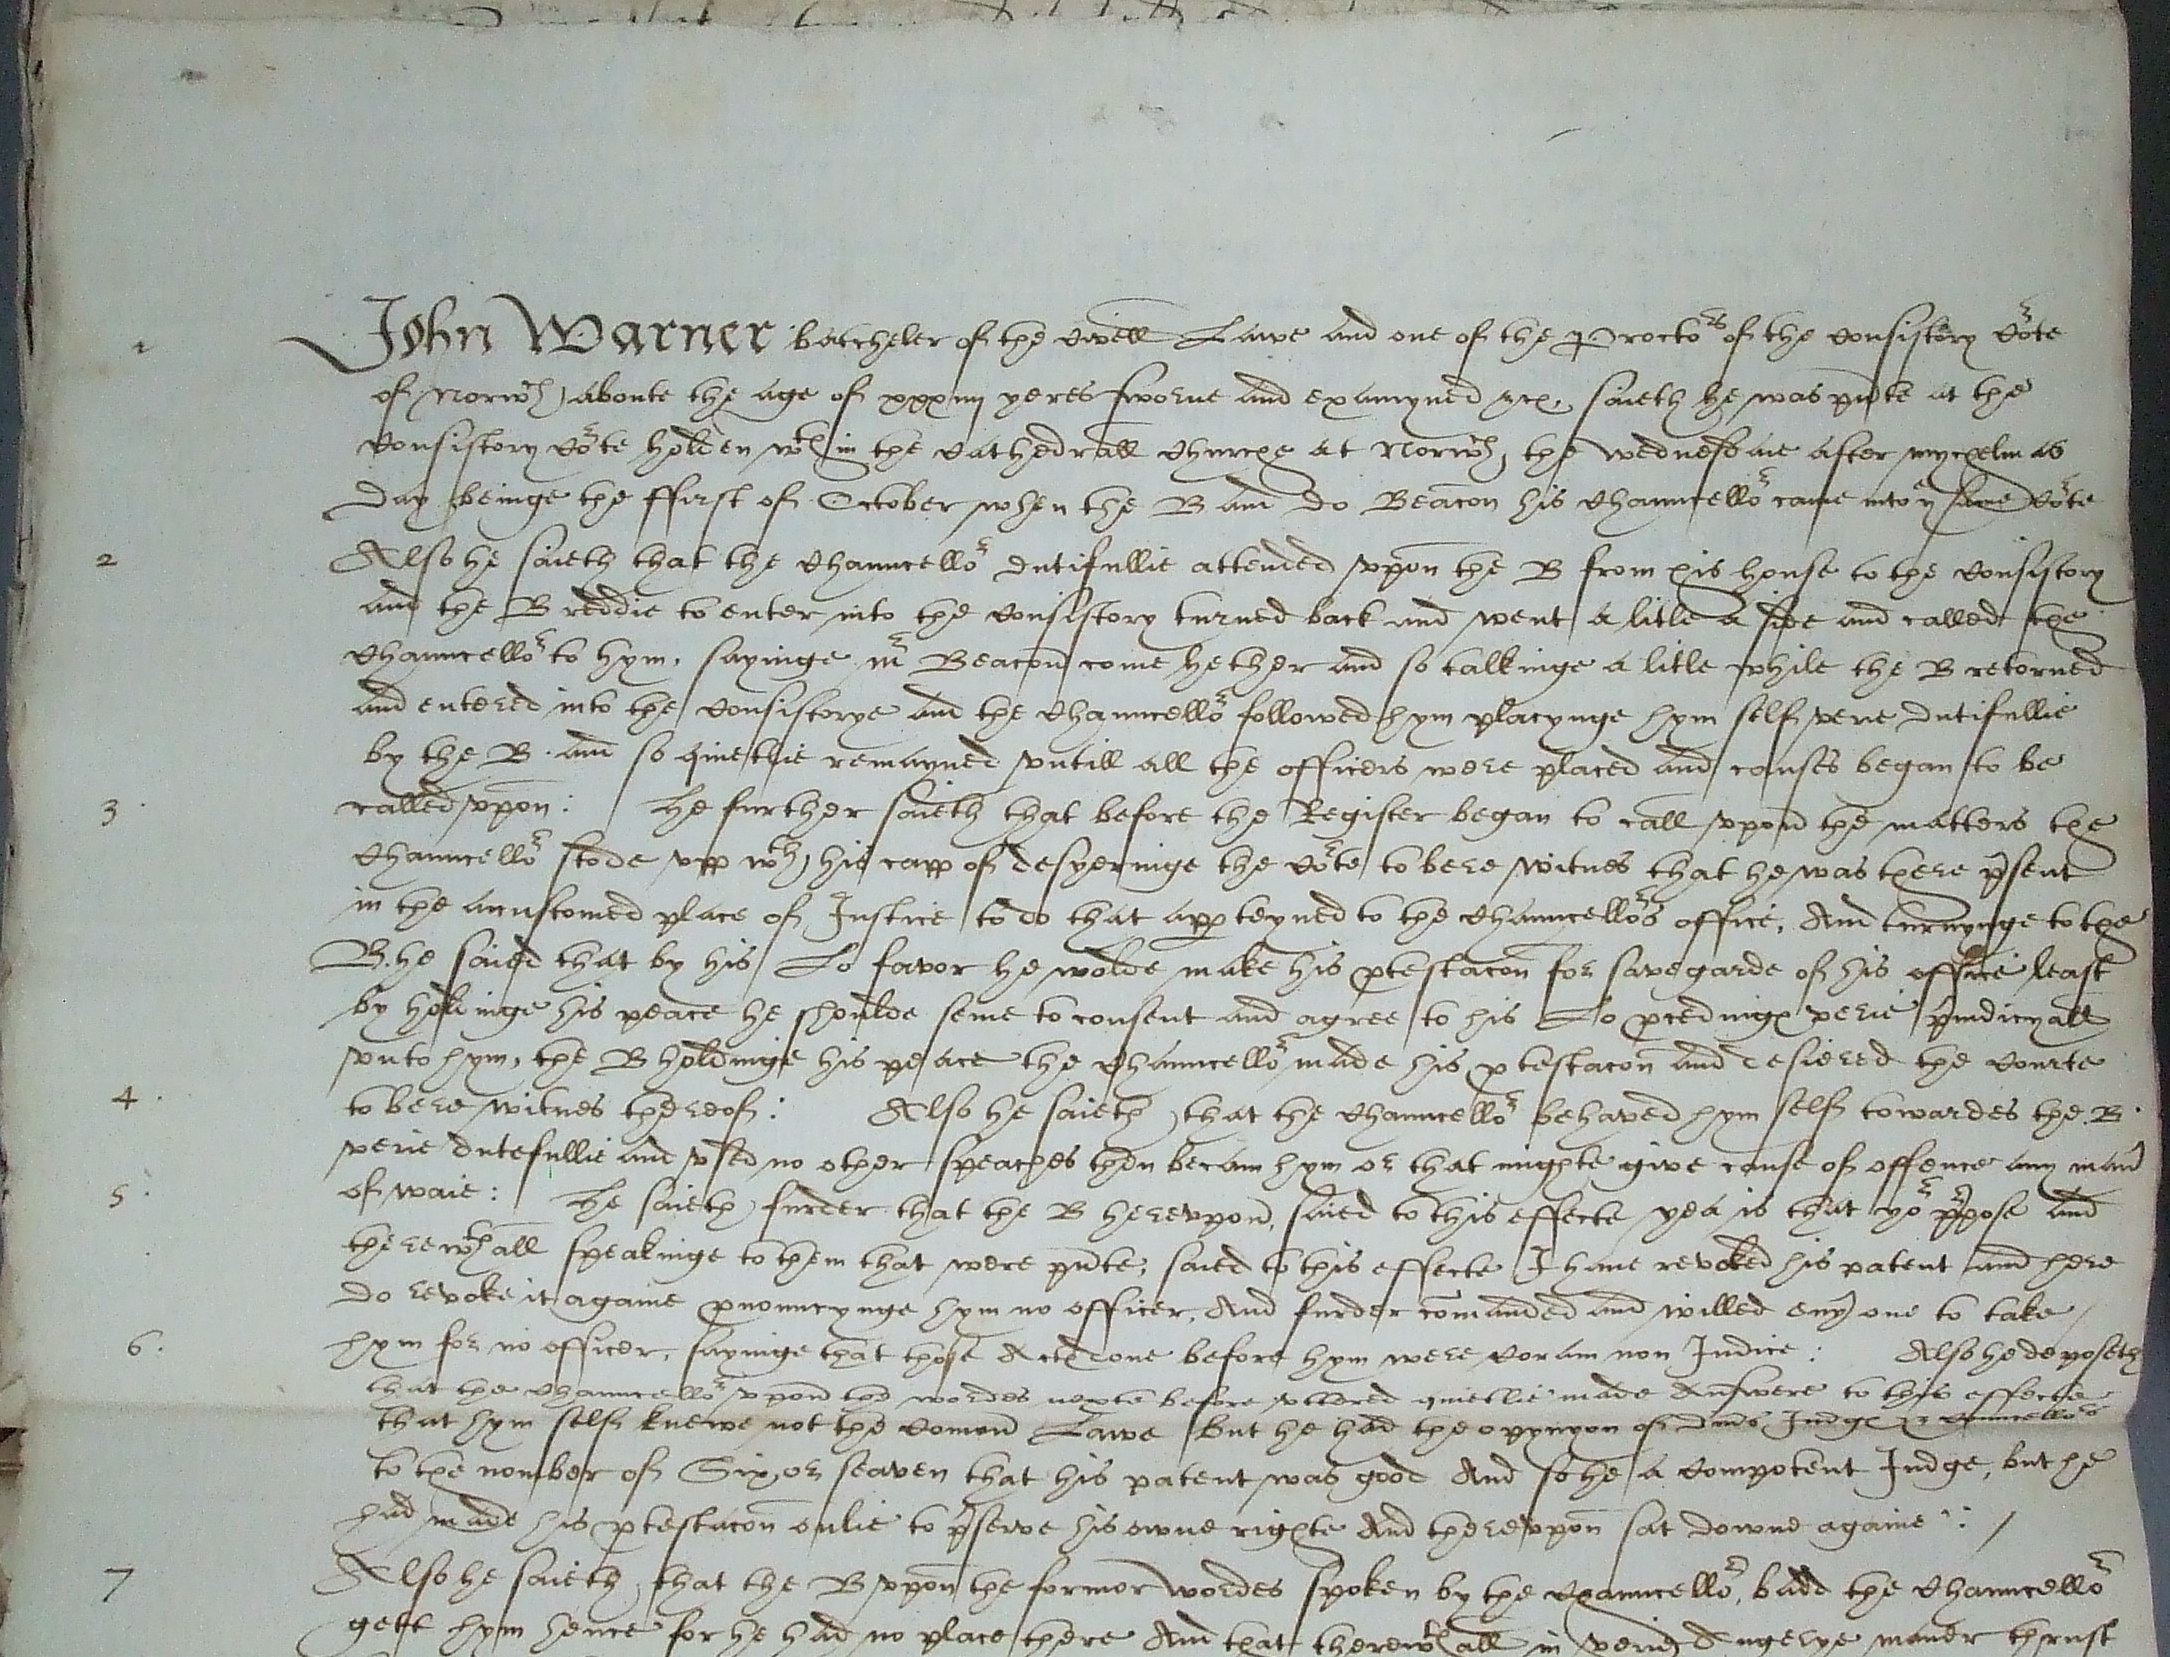 1 John Warner batcheler of the Civell Lawe and one of the Proctors of the Consistory Corte
of Norwch aboute the age of xxxiiij yeres sworne and examyned &c. saieth he was pnte at the
Consistory Corte holden wthin the Cathedrall Churche at Norwch, the wednesdaie after mychelmas
day beinge the ffirst of October when the B and Do Beacon his Chauncellor came into ye same Corte
2 Also he saieth that the Chauncellor dutifullie attended vppon the B from his house to the Consistory
and the B reddie to enter into the Consistory turned back and went a litle a side and called the
Chauncellor to hym, sayinge Mr Beacon come hether and so talkinge a litle while the B retorned
and entered into the Consistorye and the Chauncellor followed hym placynge hym self verie dutifullie
by the B. and so quietlie remayned vntill all the officers were placed and causes began to be
3 called vppon: He further saieth that before the Register began to call vppon the matters the
Chauncellor stode vpp wth his capp of desyeringe the Corte to bere witnes that he was there psent
in the accustomed place of Justice to do that appteyned to the Chauncellors office, And turnynge to the
B. he saied that by his Lo favor he wolde make his ptestacon for savegarde of his office least
by holdinge his peace he shoulde seme to consent and agree to his Lo pcedinge verie piudicyall
vnto hym, the B holdinge his peace the Chauncellor made his ptestacon and desiered the Courte
4 to bere witnes thereof: Also he saieth that the Chauncellor behaved hym self towardes the B.
verie dutefullie and vsed no other speaches then becam hym or that mighte give cause of offence any maner
5 of waie: He saieth furder that the B herevpon, saied to this effecte yea is that yor ppose and
therewthall speakinge to them that were pnte, saied to this effecte I haue revoked his patent and here
do revoke it againe pnouncynge hym no officer, And furder comanded and willed eny one to take
6 hym for no officer, sayinge that those Acts done before hym were Coram non Judice: Also he deposeth
that the Chauncellor vppon the wordes nexte before vttered quietlie made Answere to this effecte
that hym self knewe not the Comon Lawe but he had the opynyon of Judge
to the nomber of Six, or seaven that his patent was good And so he a Compotent Judge, but he
had made his ptestacon onlie to pserve his owne righte And therevppon sat downe againe:
7 Also he saieth, that the B vppon the former wordes spoken by the Chauncellor, badd the Chauncellor
gett hym hence for he had no place there And that therewthall in verie Angerye maner thrust